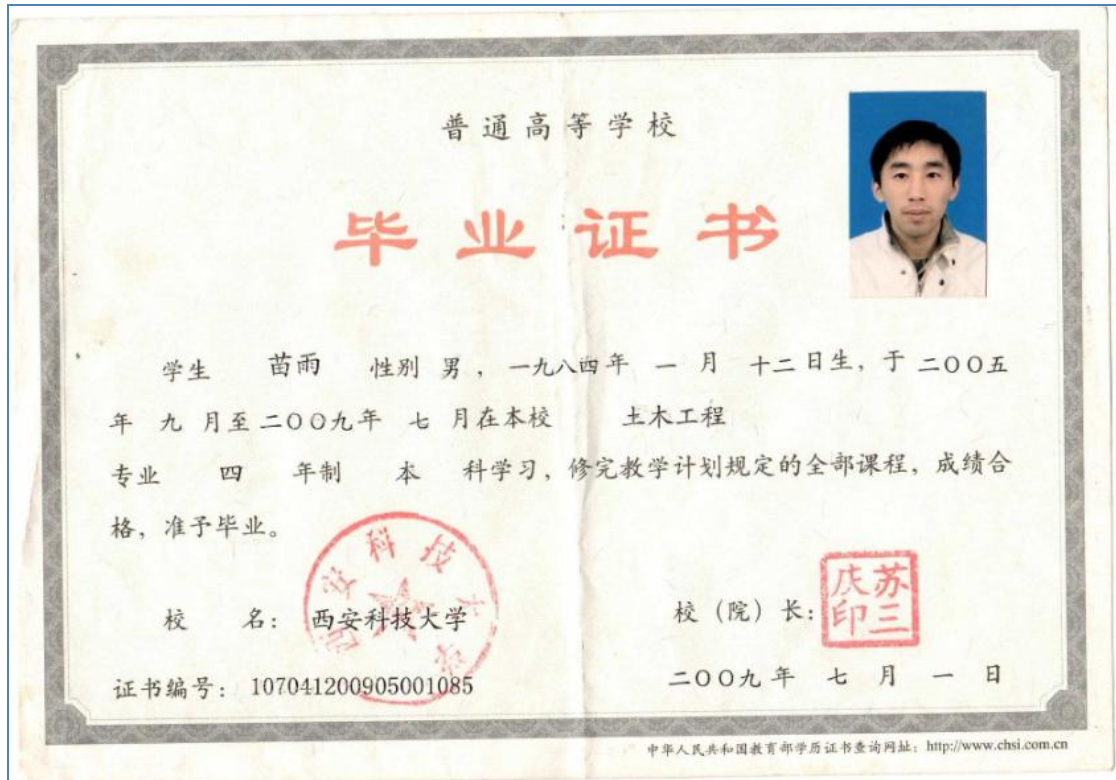 普通高等学校
毕业证书
学生 苗雨 性别 男，一九八四年 一 月 十二日生，于 二〇〇五
年 九 月至二〇〇九年 七 月在本校 土木工程
专业 四 年制 本 科学习，修完教学计划规定的全部课程，成绩合
格，准予毕业。
西安科技大学
校 名： 西安科技大学
校（院）长：
苏三庆印
证书编号： 107041200905001085
二〇〇九年 七 月 一 日
中华人民共和国教育部学历证书查询网址：http://www.chsi.com.cn